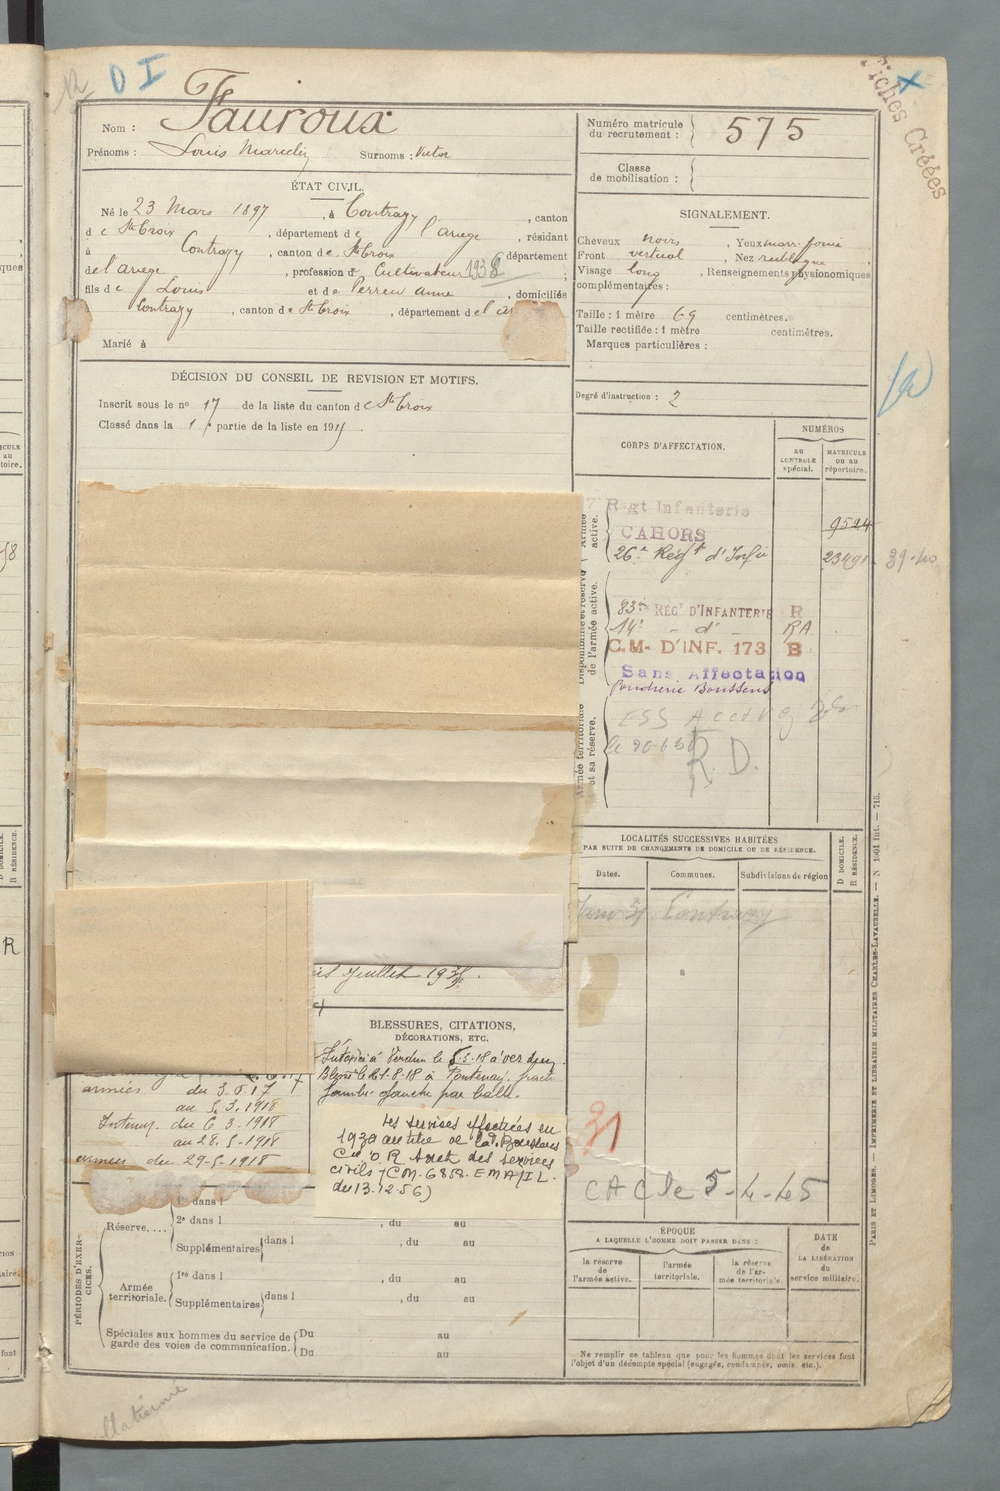 D I
Fiches Créées
Nom : Fauroux
Prénoms : Louis Marcelin Surnoms : Victor
Numéro matricule
du recrutement : 575
Classe
de mobilisation :
ÉTAT CIVIL.
Né le 23 Mars 1897, à Contrazy, canton
de Ste Croix, département de l'ariege, résidant
à Contrazy, canton de Ste Croix, département
de l'ariege, profession d Cultivateur 1932 ;
fils de Louis et de Perreu anne, domiciliés
à Contrazy, canton de Ste Croix, département de l'a
Marié à
SIGNALEMENT.
Cheveux noirs, Yeux marr. foncé
Front vertical, Nez rectiligne
Visage long, Renseignements physionomiques
complémentaires :
Taille : 1 mètre 69 centimètres.
Taille rectifiée : 1 mètre centimètres.
Marques particulières :
DÉCISION DU CONSEIL DE REVISION ET MOTIFS.
Inscrit sous le no 17 de la liste du canton de Ste Croix
Classé dans la 1 partie de la liste en 191
Degré d'instruction : 2
CORPS D'AFFECTATION.
NUMÉROS
AU CONTROLE spécial.
MATRICULE OU AU répertoire.
Armée active.
7 Regt Infanterie 9524
CAHORS
26e Régt d'Infie 23491 39-40
Disponibilité et réserve de l'armée active.
83e RÉGt D'INFANTERIE R
14e - d° - RA
C.M. D'INF. 173 B
Sans Affectation
Poudrerie Boussens
Armée territoriale et sa réserve.
R. D.
LOCALITÉS SUCCESSIVES HABITÉES
PAR SUITE DE CHANGEMENTS DE DOMICILE OU DE RÉSIDENCE.
D DOMICILE.
R RÉSIDENCE.
Dates. Communes. Subdivisions de région
Contrazy
Juillet 193
BLESSURES, CITATIONS,
DÉCORATIONS, ETC.
Intoxié à Verdun le 5.5.18 à verdun.
Blessé le 21.8.18 à Fontenay. fract
jambe gauche par balle.
armées du 3.6.17
au 5.3.1918
Intérieur. du 6 3.1918
au 28.5-1918
armées du 29-5-1918
les services effectués en
1939 au titre de la Pie Boussens
Cie O R sont des services
civils (CM. 6858. EMA/1L.
du 13.12.56)
31
CAC le 5-4-45
PÉRIODES D'EXERCICES.
Réserve....
1re dans l
2e dans l, du au
Supplémentaires dans l, du au
Armée territoriale.
1re dans l, du au
Supplémentaires dans l, du au
Spéciales aux hommes du service de
garde des voies de communication.
Du au
Du au
ÉPOQUE
A LAQUELLE L'HOMME DOIT PASSER DANS :
la réserve de l'armée active.
l'armée territoriale.
la réserve de l'armée territoriale.
DATE de LA LIBÉRATION du service militaire.
Ne remplir ce tableau que pour les hommes dont les services font
l'objet d'un décompte spécial (engagés, condamnés, omis, etc.).
PARIS ET LIMOGES. — IMPRIMERIE ET LIBRAIRIE MILITAIRES CHARLES-LAVAUZELLE. — N° 1001 Int. — 715.